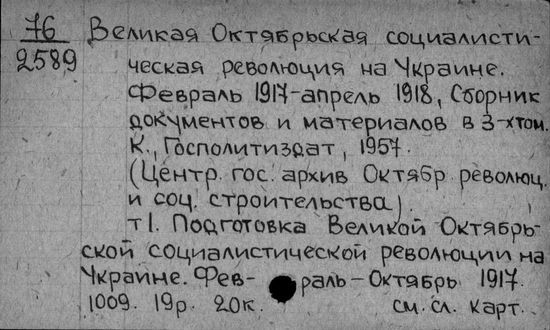 76 Великая Октябрьская социалисти-
2589 ческая революция на Украине.
Февраль 1917-апрель 1918, Сборник
документов и материалов в 3-хтом.
К., Госполитиздат, 1957.
(Центр. гос. архив Октябр. революц.
и соц. строительства).
т1. Подготовка Великой Октябрь-
ской социалистической революции на
Украине. Фев- раль-Октябрь 1917.
1009. 19р. 20к. см. сл. карт.